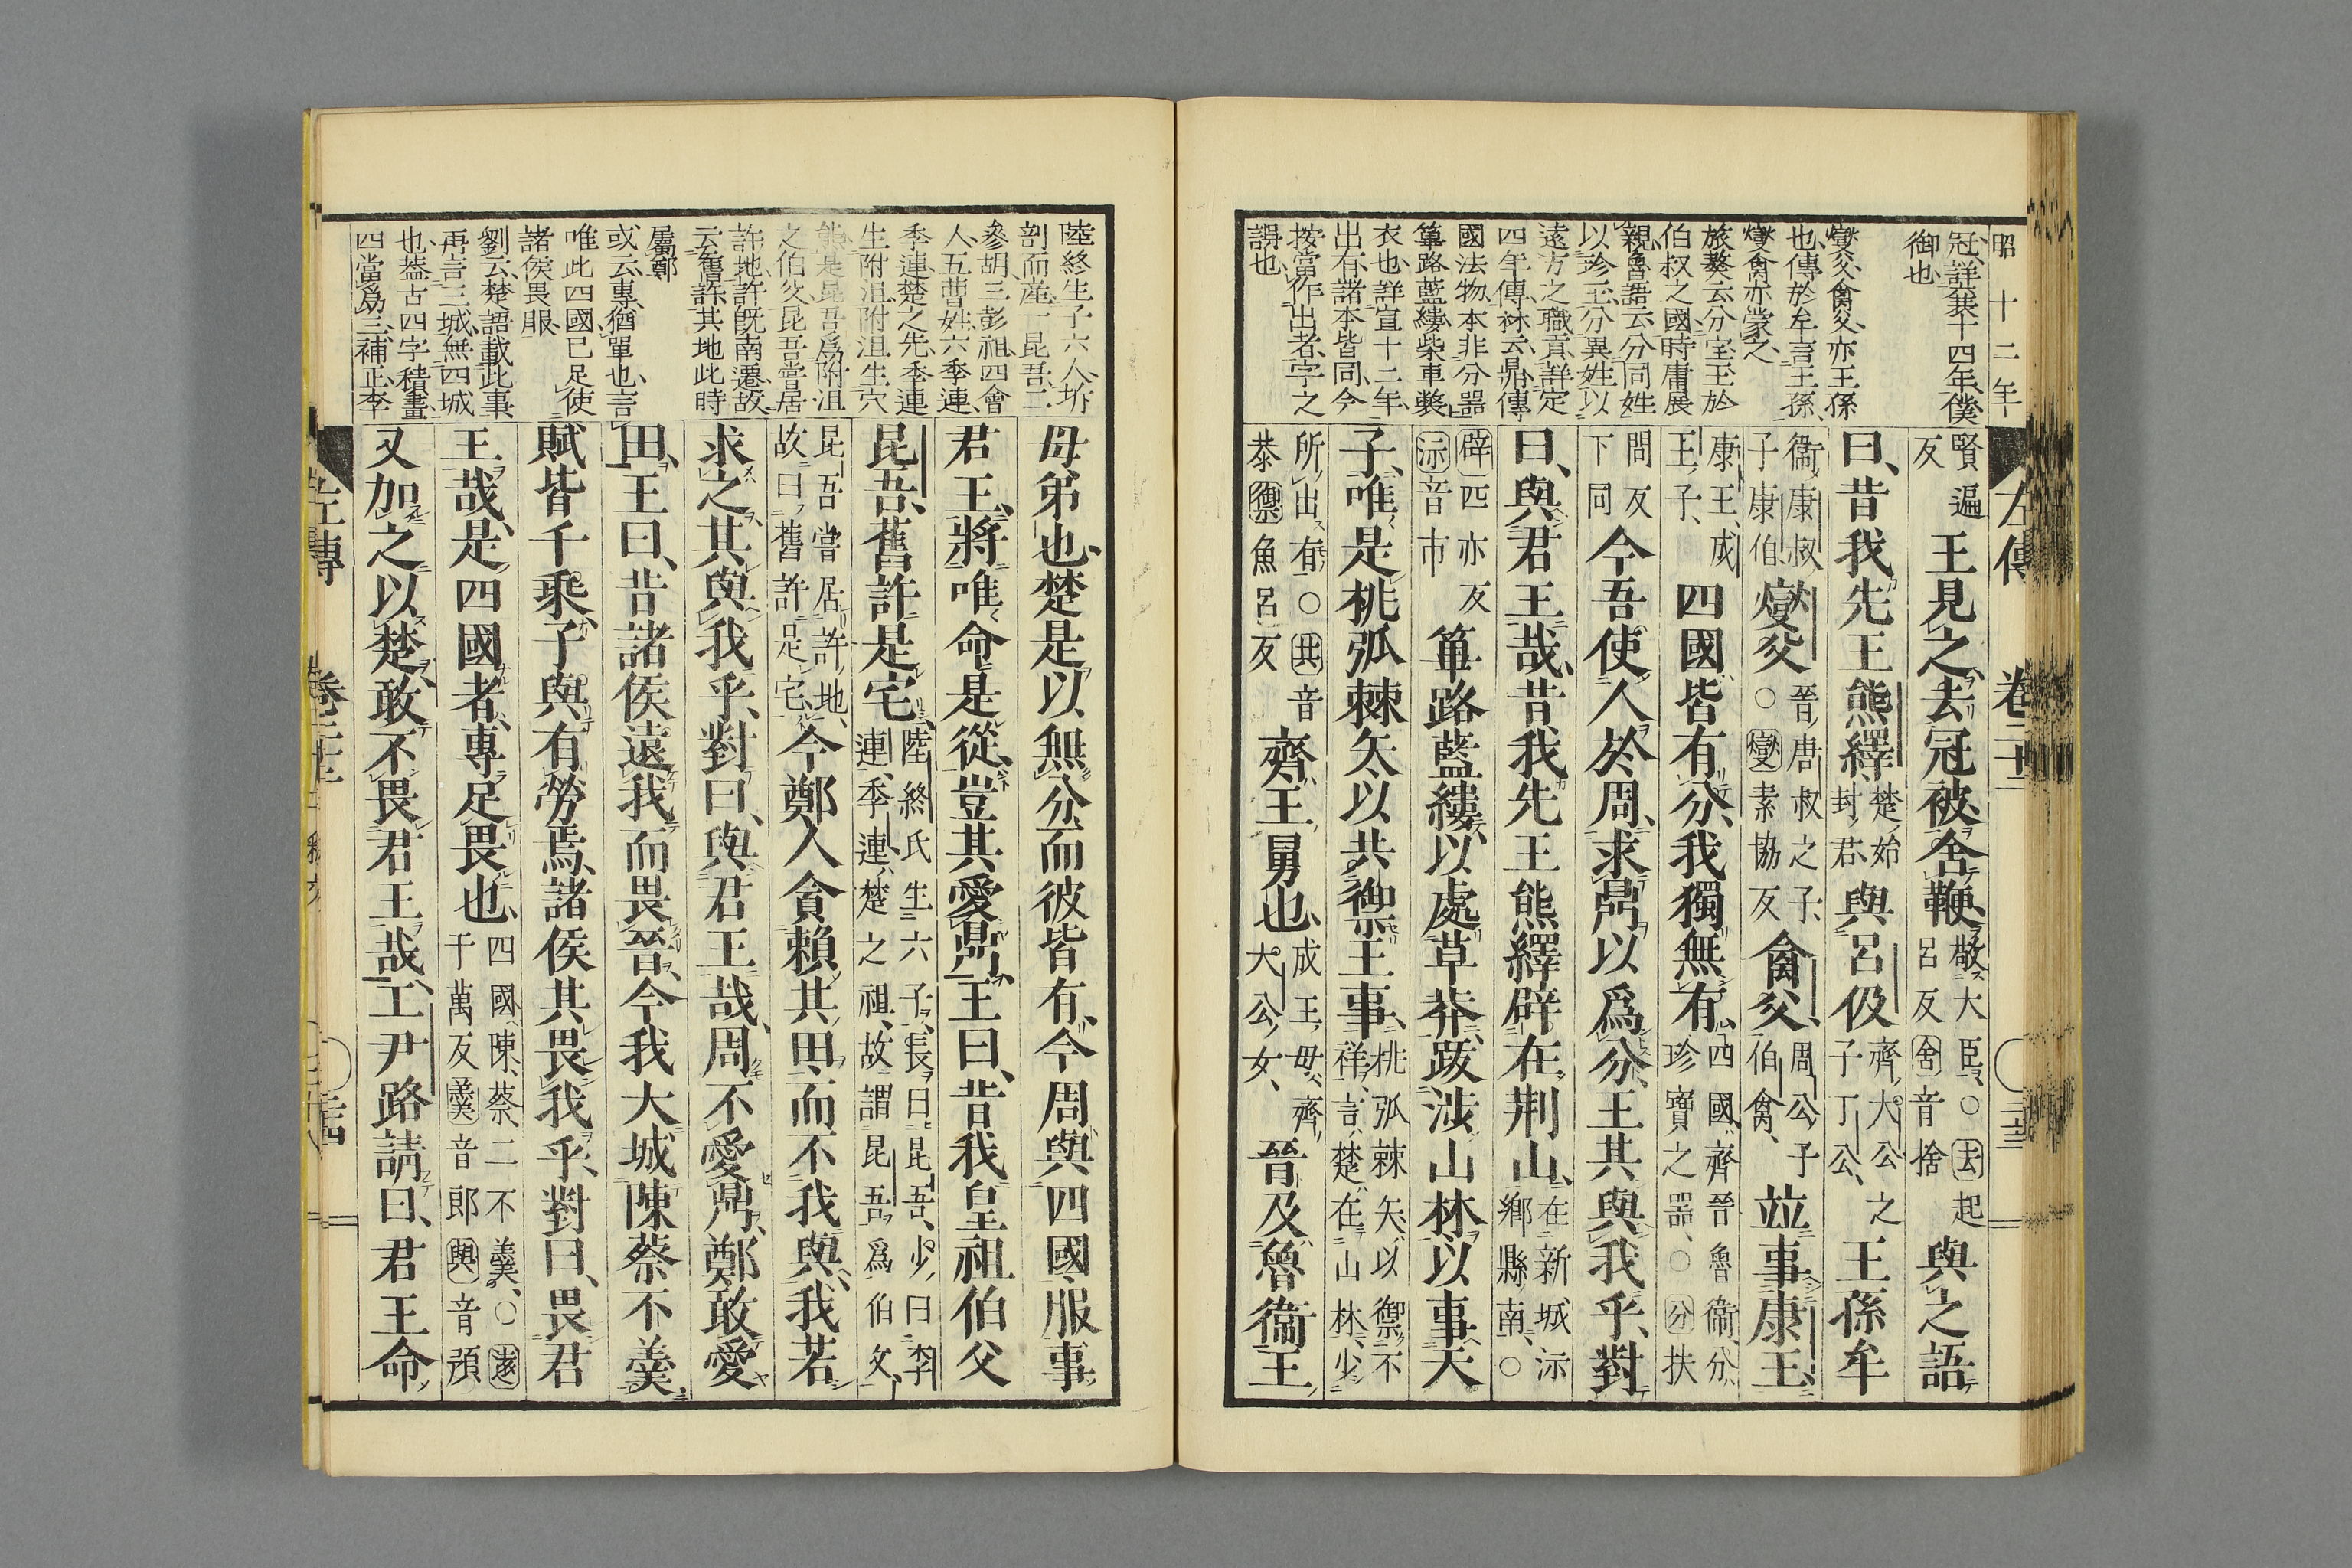 昭十二年
左傳 卷二十二
冠、詳襄十四年、僕
御也、
燮父、禽父、亦王孫
也、傳於牟言王孫、
燮禽亦蒙之、
旅獒云分宝玉於
伯叔之國、時庸展
親、魯語云分同姓
以珍玉、分異姓以
遠方之職貢、詳定
四年傳、林云鼎傳
國法物、本非分器
篳路藍縷、柴車獘
衣也、詳宣十二年、
出有、諸本皆同、今
按當作出者、字之
誤也、
賢遍反王見之、去冠被舍鞭、敬大臣、○去起呂反舍音捨與之語
曰、昔我先王熊繹、楚始封君、與呂伋齊大公之子丁公、王孫牟
衞康叔子康伯燮父○晉唐叔之子、燮素協反禽父、周公子伯禽、竝事康王、
康王、成王子、四國皆有分、我獨無有、四國、齊晉魯衞、分珍寶之器、○分扶
問反下同今吾使人於周、求鼎以爲分、王其與我乎、對
曰、與君王哉、昔我先王熊繹辟在荆山、在新城沶鄉縣南、○
辟匹亦反沶音市篳路藍縷、以處草莽、跋涉山林、以事天
子、唯是桃弧棘矢以共禦王事、桃弧棘矢、以禦不祥、言楚在山林、少
所出有、○共音恭禦魚呂反齊、王舅也、成王母、齊大公女、晉及魯衞、王
陸終生子六人、坼
剖而産、一昆吾、二
參胡、三彭祖、四會
人、五曹姓、六季連、
季連楚之先、季連
生附沮、附沮生穴
熊、是昆吾爲附沮
之伯父、昆吾嘗居
許地、許既南遷、故
云舊許、其地此時
屬鄭
或云、專猶單也、言
唯此四國已足使
諸侯畏服、
劉云、楚語載此事
再言三城、無四城
也、葢古四字積畫、
四當爲三、補正、李
母弟也、楚是以無分、而彼皆有、今周與四國服事
君王、將唯命是從、豈其愛鼎、王曰、昔我皇祖伯父
昆吾、舊許是宅、陸終氏生六子、長曰昆吾、少曰季連、季連、楚之祖、故謂昆吾爲伯父、
昆吾嘗居許地、故曰、舊許是宅、今鄭人貪賴其田、而不我與、我若
求之、其與我乎、對曰、與君王哉、周不愛鼎、鄭敢愛
田、王曰、昔諸侯遠我而畏晉、今我大城陳蔡不羹、
賦皆千乘、子與有勞焉、諸侯其畏我乎、對曰、畏君
王哉、是四國者、專足畏也、四國、陳、蔡、二不羹、○遠于萬反羹音郎與音預
又加之以楚、敢不畏君王哉、工尹路請曰、君王命